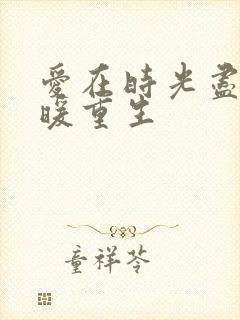 愛在時光盡
暖重生
童祥苓